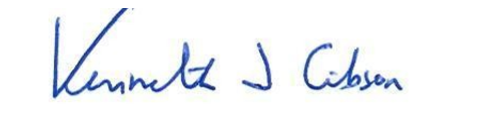 Kenneth J Gibson